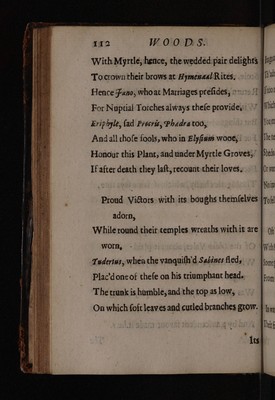 112 WOODS.
With Myrtle, hence, the wedded pair delights
To crown their brows at Hymenæal Rites.
Hence Juno, who at Marriages presides,
For Nuptial Torches always these provide.
Eriphyle, sad Procris, Phædra too,
And all those fools, who in Elysium wooe,
Honour this Plant, and under Myrtle Groves,
If after death they last, recount their loves.
Proud Victors with its boughs themselves
adorn,
While round their temples wreaths with it are
worn,
Tudertus, when the vanquish'd Sabines fled,
Plac'd one of these on his triumphant head.
The trunk is humble, and the top as low,
On which soft leaves and curled branches grow.
Its